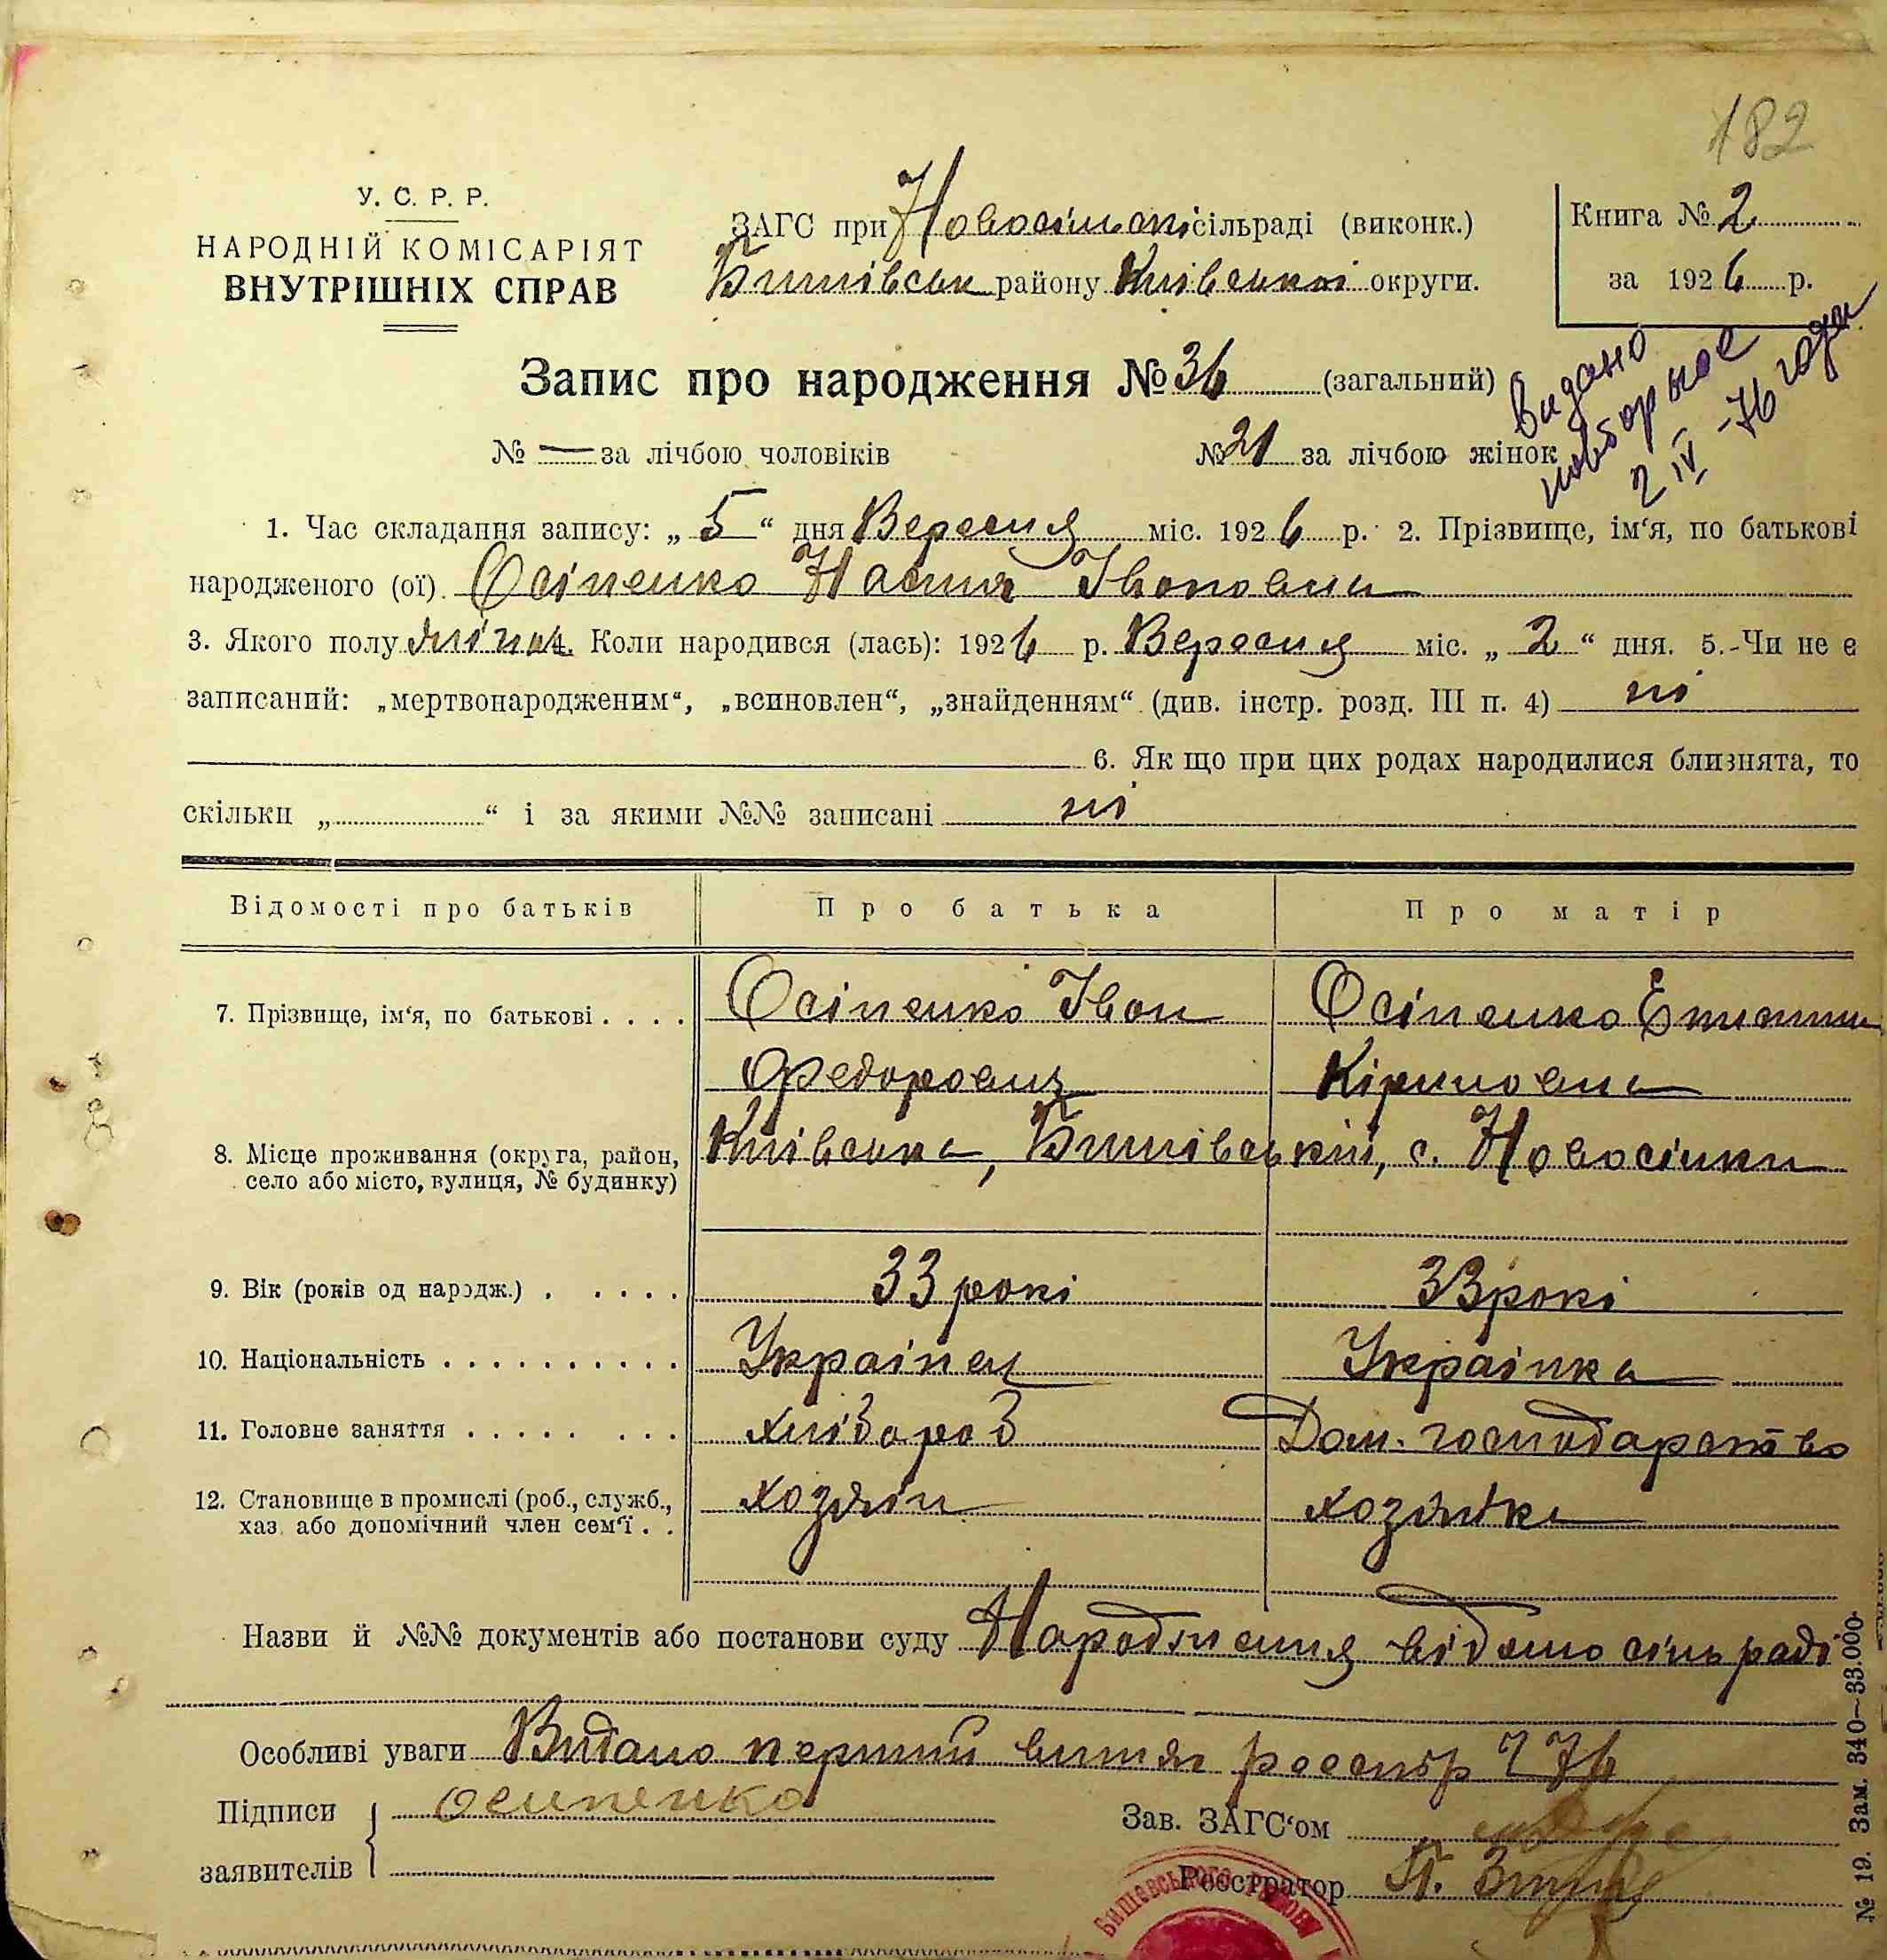 182
У. С. Р. Р.
НАРОДНІЙ КОМІСАРІЯТ
ВНУТРІШНІХ СПРАВ
ЗАГС при Новосілескі сільраді (виконк.)
Бишівськ району Київської округи.
Книга № 2
за 1926 р.
Видано
повторное
2 IV -76 года
Запис про народження № 36 (загальний)
№ — за лічбою чоловіків № 21 за лічбою жінок
1. Час складання запису: „ 5 “ дня Вересня міс. 1926 р. 2. Прізвище, ім‘я, по батькові
народженого (ої) Осіпенко Настя Івановна
3. Якого полу жіноч 4. Коли народився (лась): 1926 р. Вересня міс. „ 2 “ дня. 5. Чи не є
записаний: „мертвонародженим“, „всиновлен“, „знайденням“ (див. інстр. розд. III п. 4) ні
6. Як що при цих родах народилися близнята, то
скільки „ “ і за якими №№ записані ні
Відомості про батьків Про батька Про матір
7. Прізвище, ім‘я, по батькові . . . . Осіпенко Іван Осіпенко
Федорович Кіриловна
8. Місце проживання (округа, район, Київська, Бишівський, с. Новосілки
село або місто, вулиця, № будинку)
9. Вік (років од народж.) . . . . . 33 рокі 33 рокі
10. Національність . . . . . . . . . . Українец Українка
11. Головне заняття . . . . . . . . хлібороб Дом. господарство
12. Становище в промислі (роб., служб., хозяін хозяйка
хаз. або допомічний член сем‘ї . .
Назви й №№ документів або постанови суду Народження відомо сільраді
Особливі уваги Видано перший витяг реестр № 76
Підписи осипенко
заявителів
Зав. ЗАГС‘ом
Реєстратор П.
БИШІВСЬКОГО
№ 19. Зам. 340—33.000.